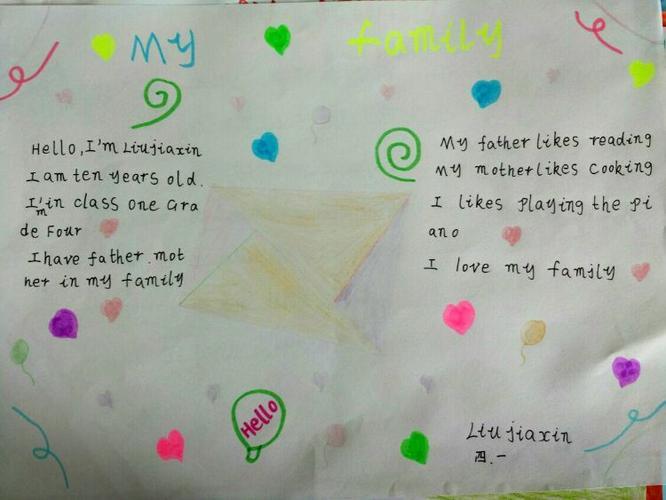 My family
Hello, I'm Liujiaxin
I am ten years old.
I'm in class one Gra
de Four
I have father. mot
her in my family
My father likes reading
My mother likes cooking
I likes playing the pi
ano
I love my family
Hello
Liujiaxin
四.一